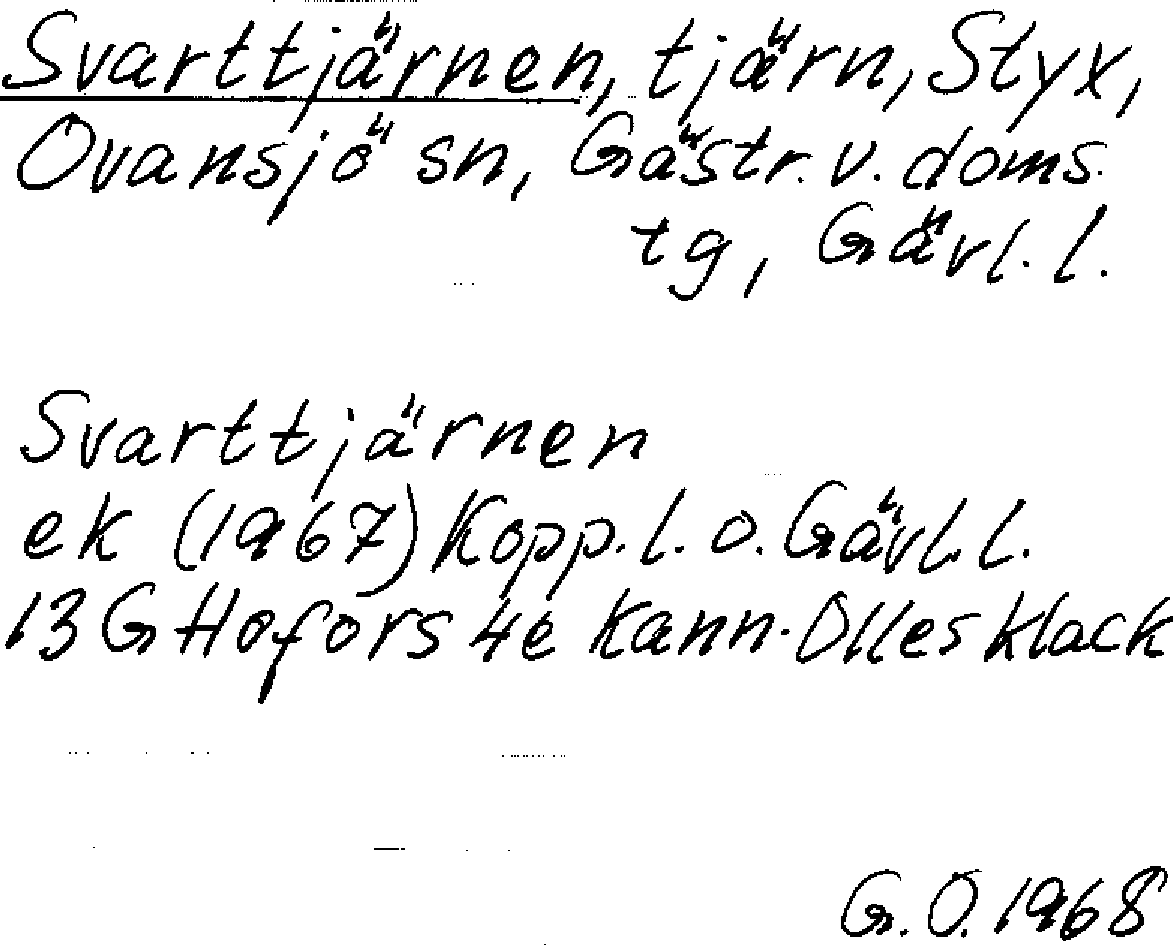 Svarttjärnen, tjärn, Styx,
Ovansjö sn, Gästr. v. doms.
tg, Gävl. l.
Svarttjärnen
ek (1967) Kopp. l. o. Gävl. l.
13 G Hofors 4e Kann-Olles klack
G. O. 1968